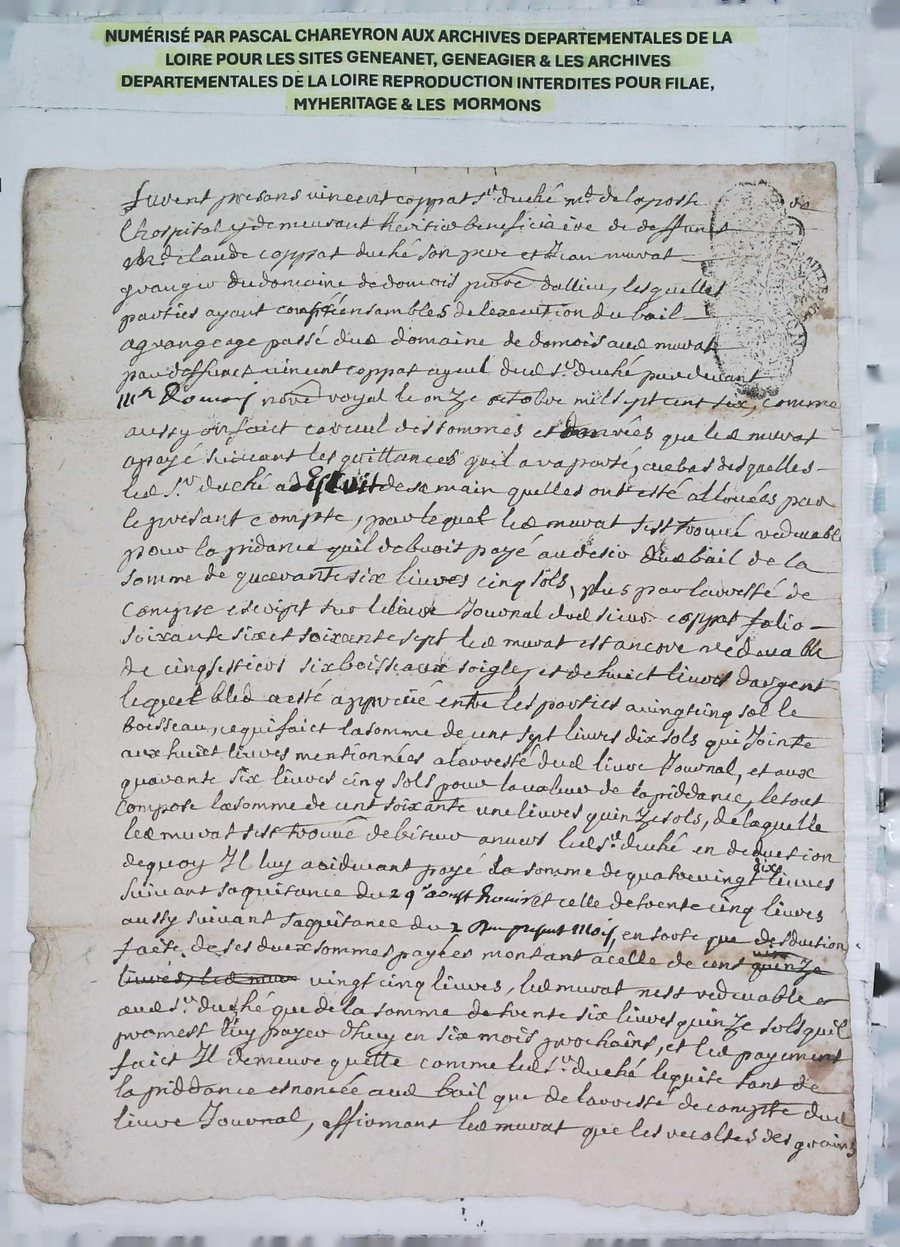 NUMÉRISÉ PAR PASCAL CHAREYRON AUX ARCHIVES DEPARTEMENTALES DE LA
LOIRE POUR LES SITES GENEANET, GENEAGIER & LES ARCHIVES
DEPARTEMENTALES DE LA LOIRE REPRODUCTION INTERDITES POUR FILAE,
MYHERITAGE & LES MORMONS
furent presans vincent coppat sr. duché md. de la poste
lhospital y demeurant heritier beneficiaire de deffunct
Md. claude coppat duché son pere et Jean murat
granger du domaine de domois parroe dallieu, lesquelles
parties ayant compté ensambles de lexecution du bail
a grangeage passé dud domaine de domois aud murat
par deffunct vincent coppat ayeul dud sr. duché pardevant
Mr notre royal le onze octobre mil sept cent six, comme
aussy on faict calcul des sommes et denrées que led murat
a payé suivant les quittances quil a raporté, au bas desquelles
led sr. duché a Escrit de sa main quelles ont esté allouées par
le present compte, par lequel led murat sest trouvé redevable
pour la piddance quil debvoit payé au desir dud bail de la
somme de quarante six livres cinq sols, plus par larresté de
compte escript sur le livre Journal dud sieur coppat folio
soixante six et soixante sept led murat est ancore redevable
de cinq sestiers six boisseaux soigle, et de huict livres dargent
lequel bled a esté apprecié entre les parties a vingt cinq sol le
boisseau, ce qui faict la somme de cent sept livres dix sols qui Jointe
aux huict livres mentionnées a larresté dud livre Journal, et aux
quarante six livres cinq sols pour la valeur de la piddance, le tout
compose la somme de cent soixante une livres quinze sols, de laquelle
led murat sest trouvé debiteur anvers led sr. duché en deduction
de quoy Il luy a cidevant payé la somme de quatrevingt dix livres
suivant sa quitance du 29e aoust et celle de trente cinq livres
aussy suivant sa quitance du 2 du present mois, en sorte que desduction
faicte de ses deux sommes payées montant a celle de cent quinze
livres, led mur vingt cinq livres, led murat nest redevable
aud sr. duché que de la somme de trente six livres quinze sols quil
promest luy payer dhuy en six mois prochains, et led payement
faict Il demeure quitte comme led sr. duché le quite tant de
la piddance enoncée aud bail que de larresté de compte dud
livre Journal, affirmant led murat que les recoltes des grains